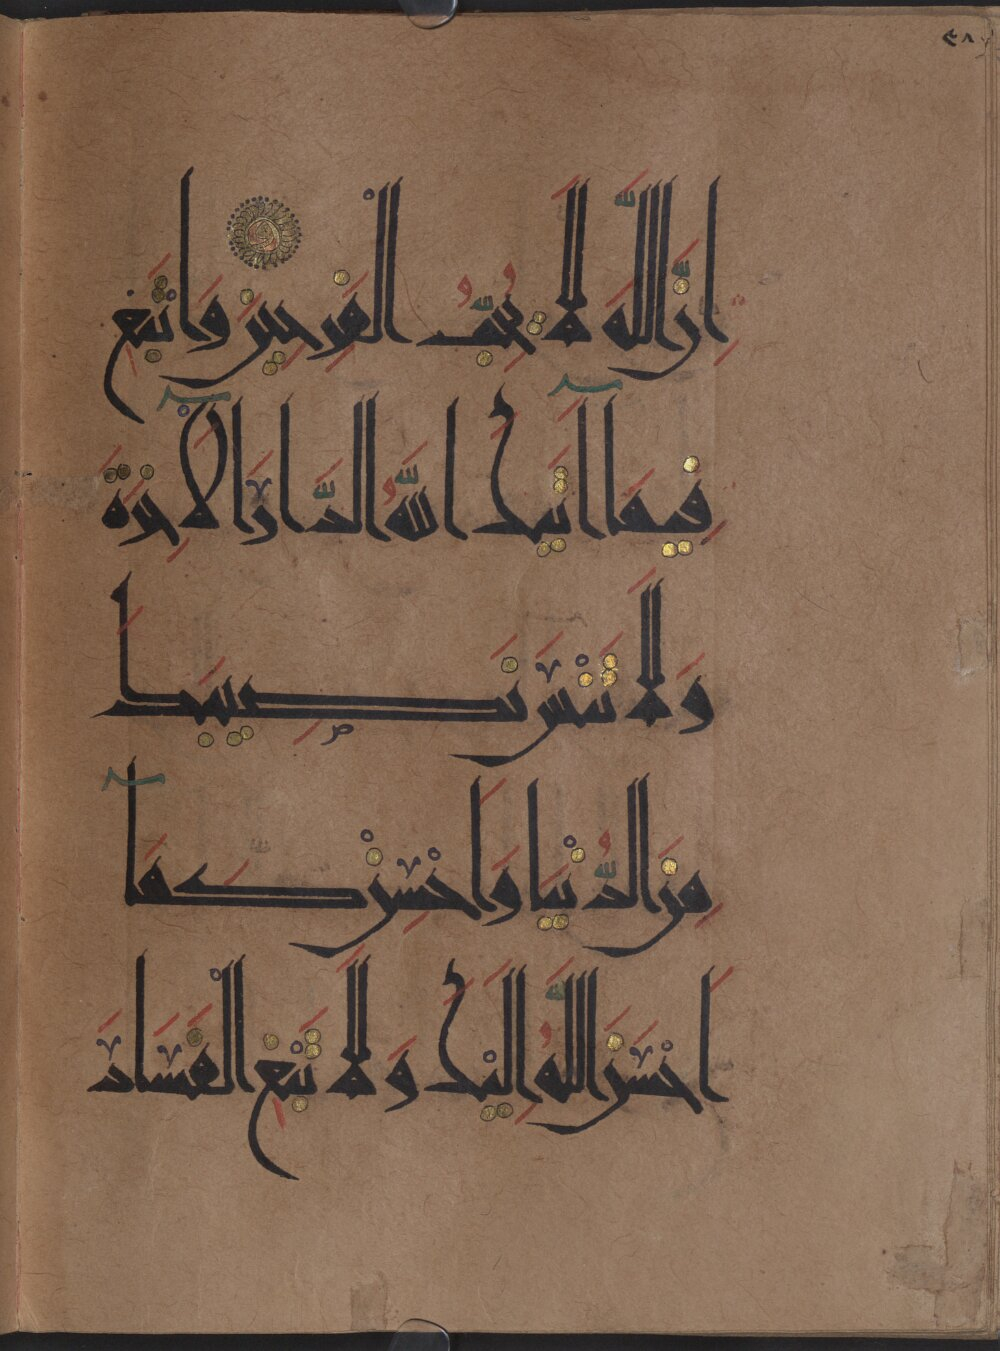 اِنَّ اللّٰهَ لَا يُحِبُّ الْفَرِحِينَ وَابْتَغِ
فِيمَآ اٰتٰيكَ اللّٰهُ الدَّارَ الْاٰخِرَةَ
وَلَا تَنْسَ نَصِيبَكَ
مِنَ الدُّنْيَا وَاَحْسِنْ كَمَآ
اَحْسَنَ اللّٰهُ اِلَيْكَ وَلَا تَبْغِ الْفَسَادَ